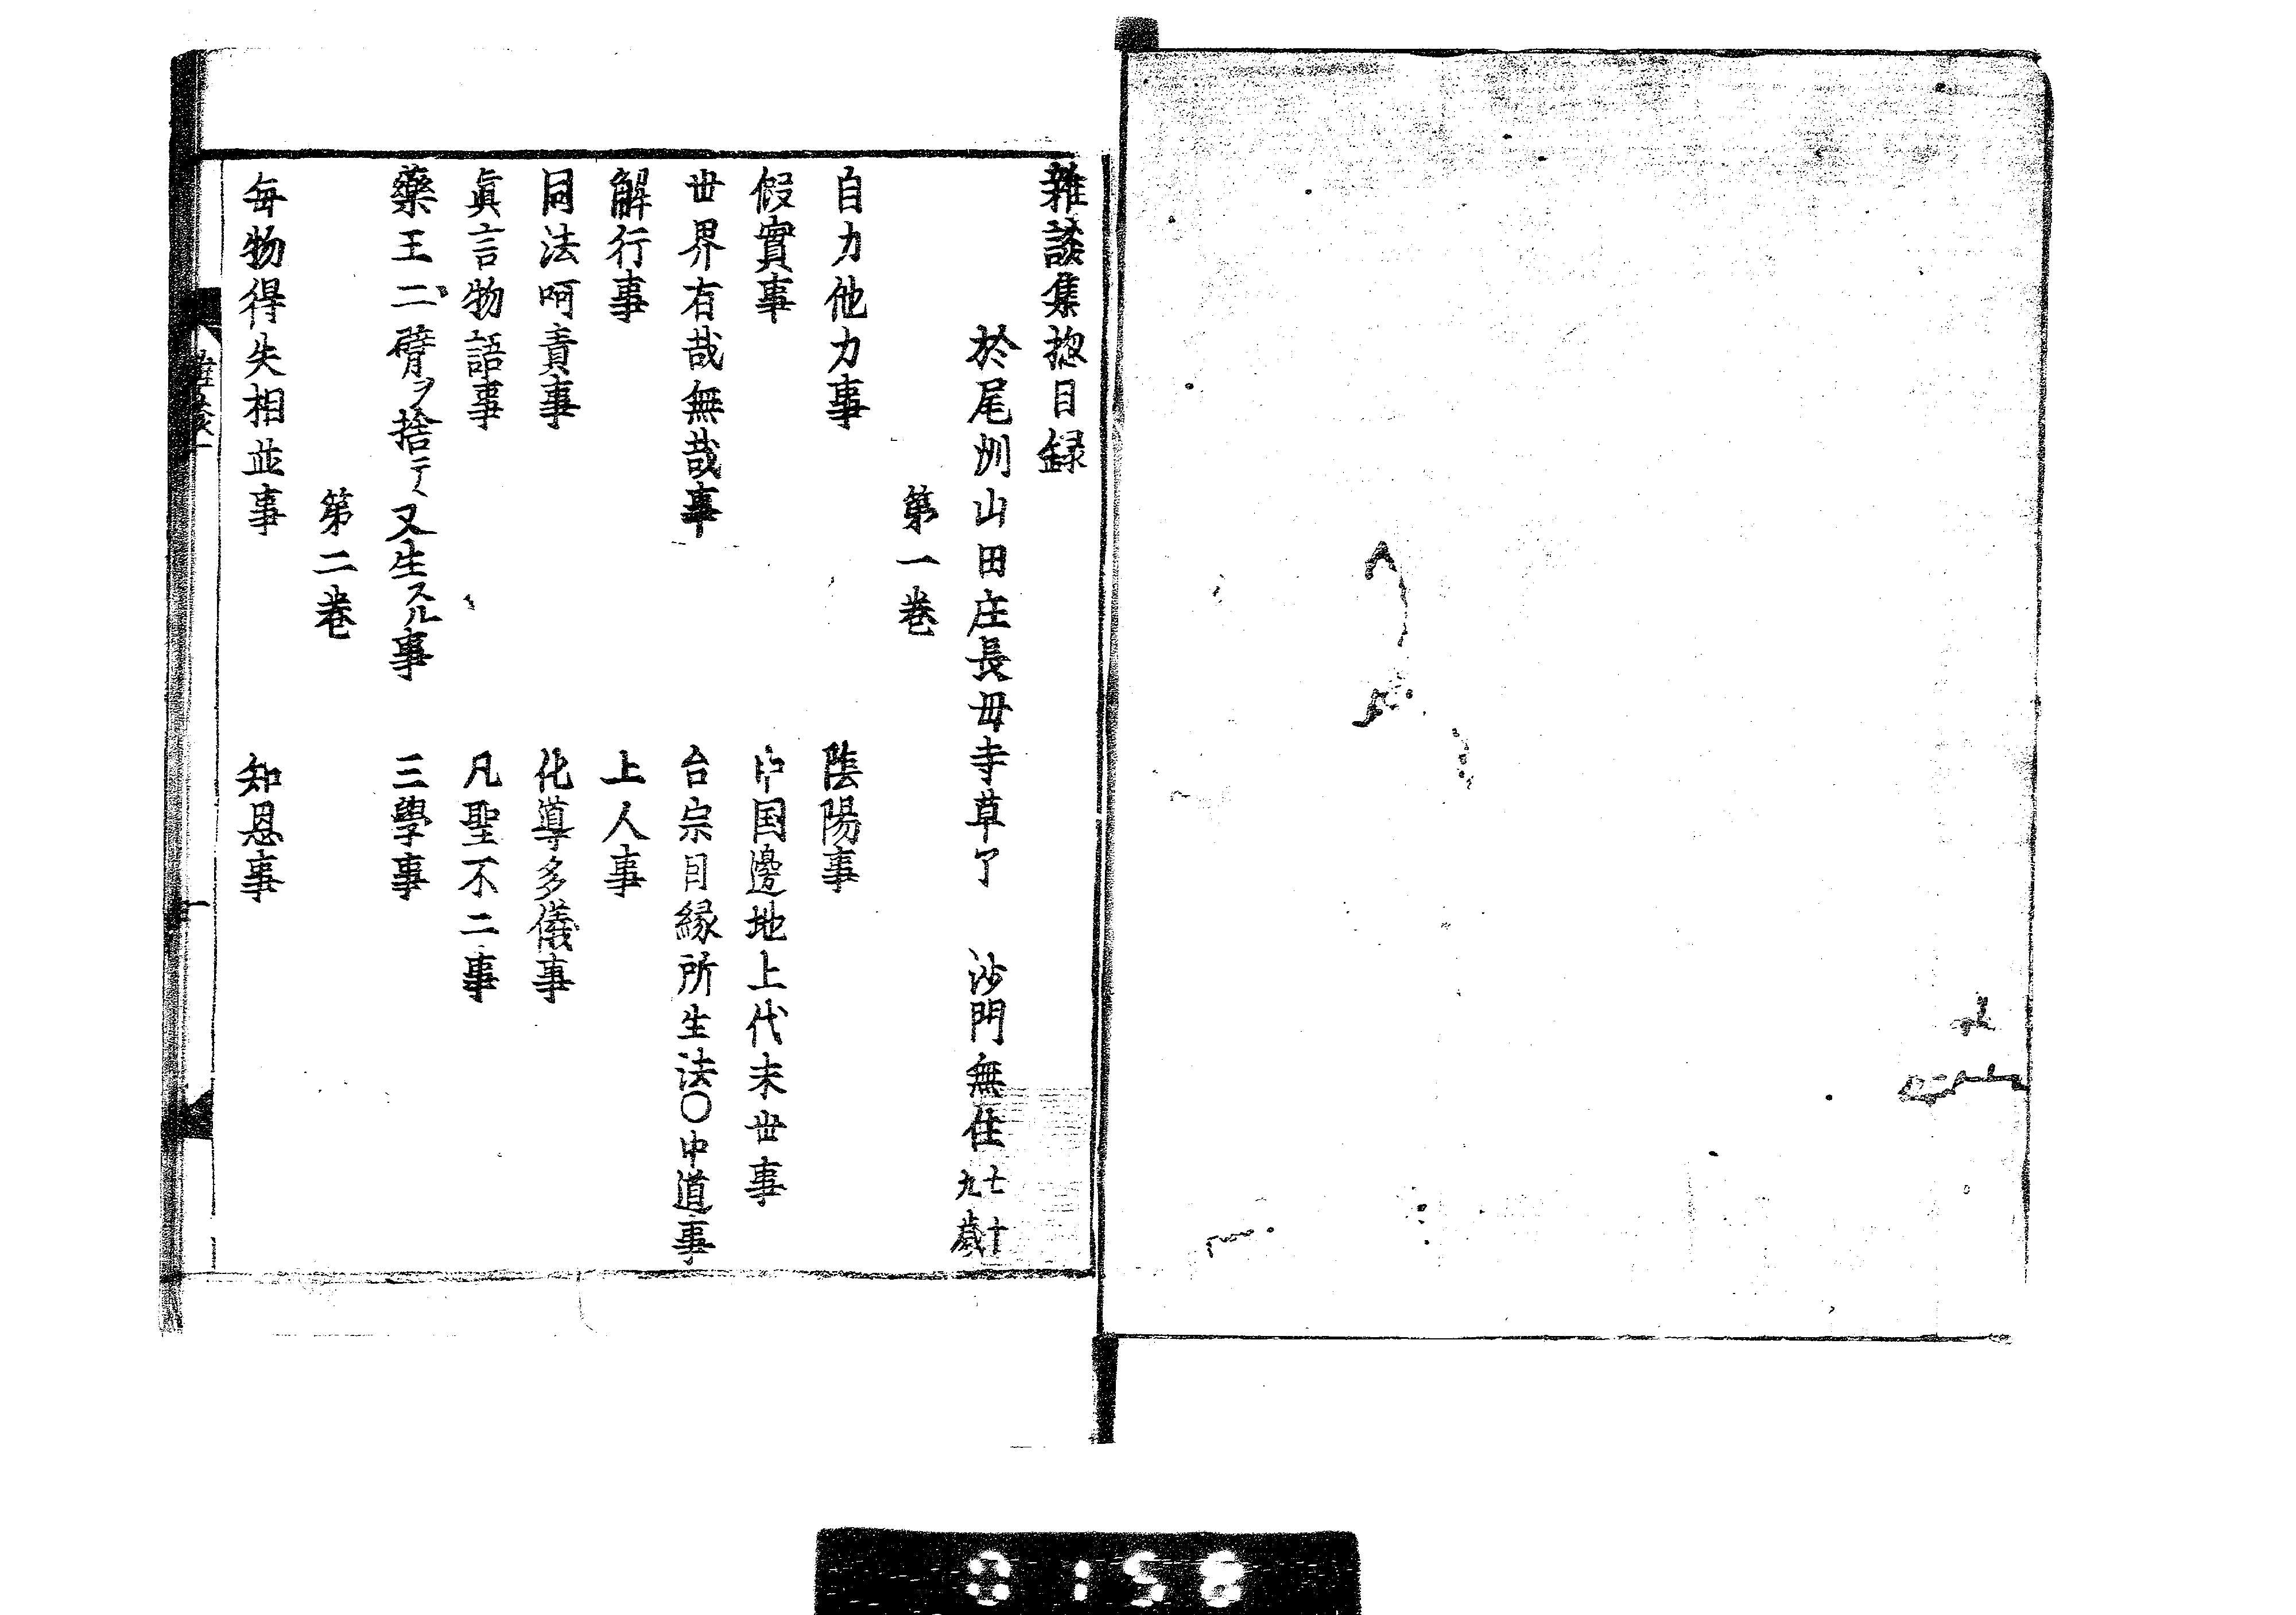 雜談集揔目録
於尾州山田庄長母寺草了　沙門無住七十九歲
第一巻
自力他力事　陰陽事
假實事　中国邊地上代末世事
世界有哉無哉事　台宗目縁所生法〇中道事
解行事　上人事
同法呵責事　化導多儀事
眞言物語事　凡聖不二事
藥王二臂ヲ捨テヽ又生スル事　三學事
第二巻
每物得失相並事　知恩事
一
0158